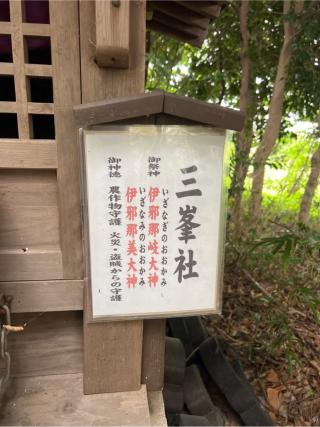 三峯社
御祭神
いざなぎのおおかみ
伊邪那岐大神
いざなみのおおかみ
伊邪那美大神
御神徳 農作物守護 火災・盗賊からの守護